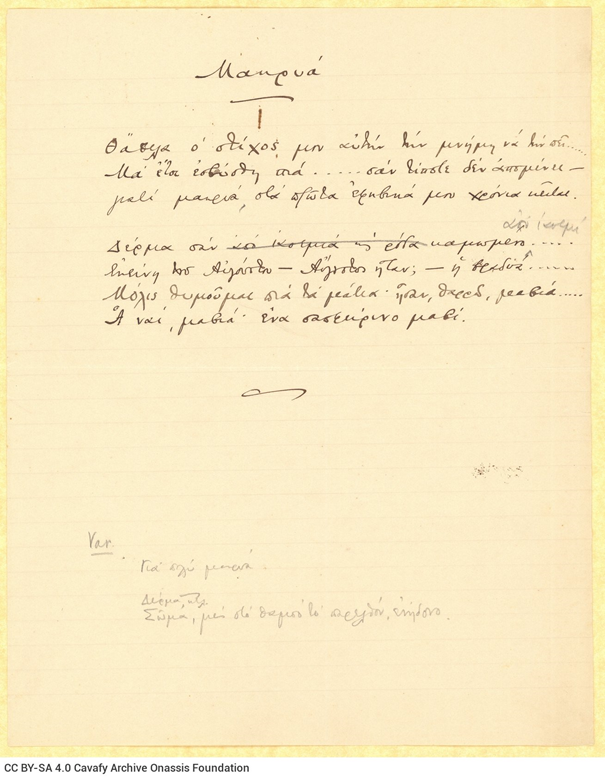 Μακρυά
Θἄθελα ὁ στίχος μου αὐτήν τήν μνήμη νά τήν πεῖ......
Μά ἔτσι ἐσβύσθη πιά...... σάν τίποτε δέν ἀπομένει —
γιατί μακρυά, στά πρῶτα ἐφηβικά μου χρόνια κεῖται.
ἀπό ἰασεμί
Δέρμα σάν ἀπό ἰασεμιά κῃ ρόδα καμωμένο......
Ἐκείνη τοῦ Αὐγούστου — Αὔγουστος ἦταν; — ἡ βραδυά......
Μόλις θυμοῦμαι πιά τά μάτια· ἦσαν, θαρρῶ, μαβιά.....
Ἄ ναί, μαβιά· ἕνα σαπφείρινο μαβί.
Var.
Γιά πολύ μακρυά.
Δέρμα, κτλ
Σῶμα, μές στό θαμπό τό παρελθόν,
CC BY-SA 4.0 Cavafy Archive Onassis Foundation